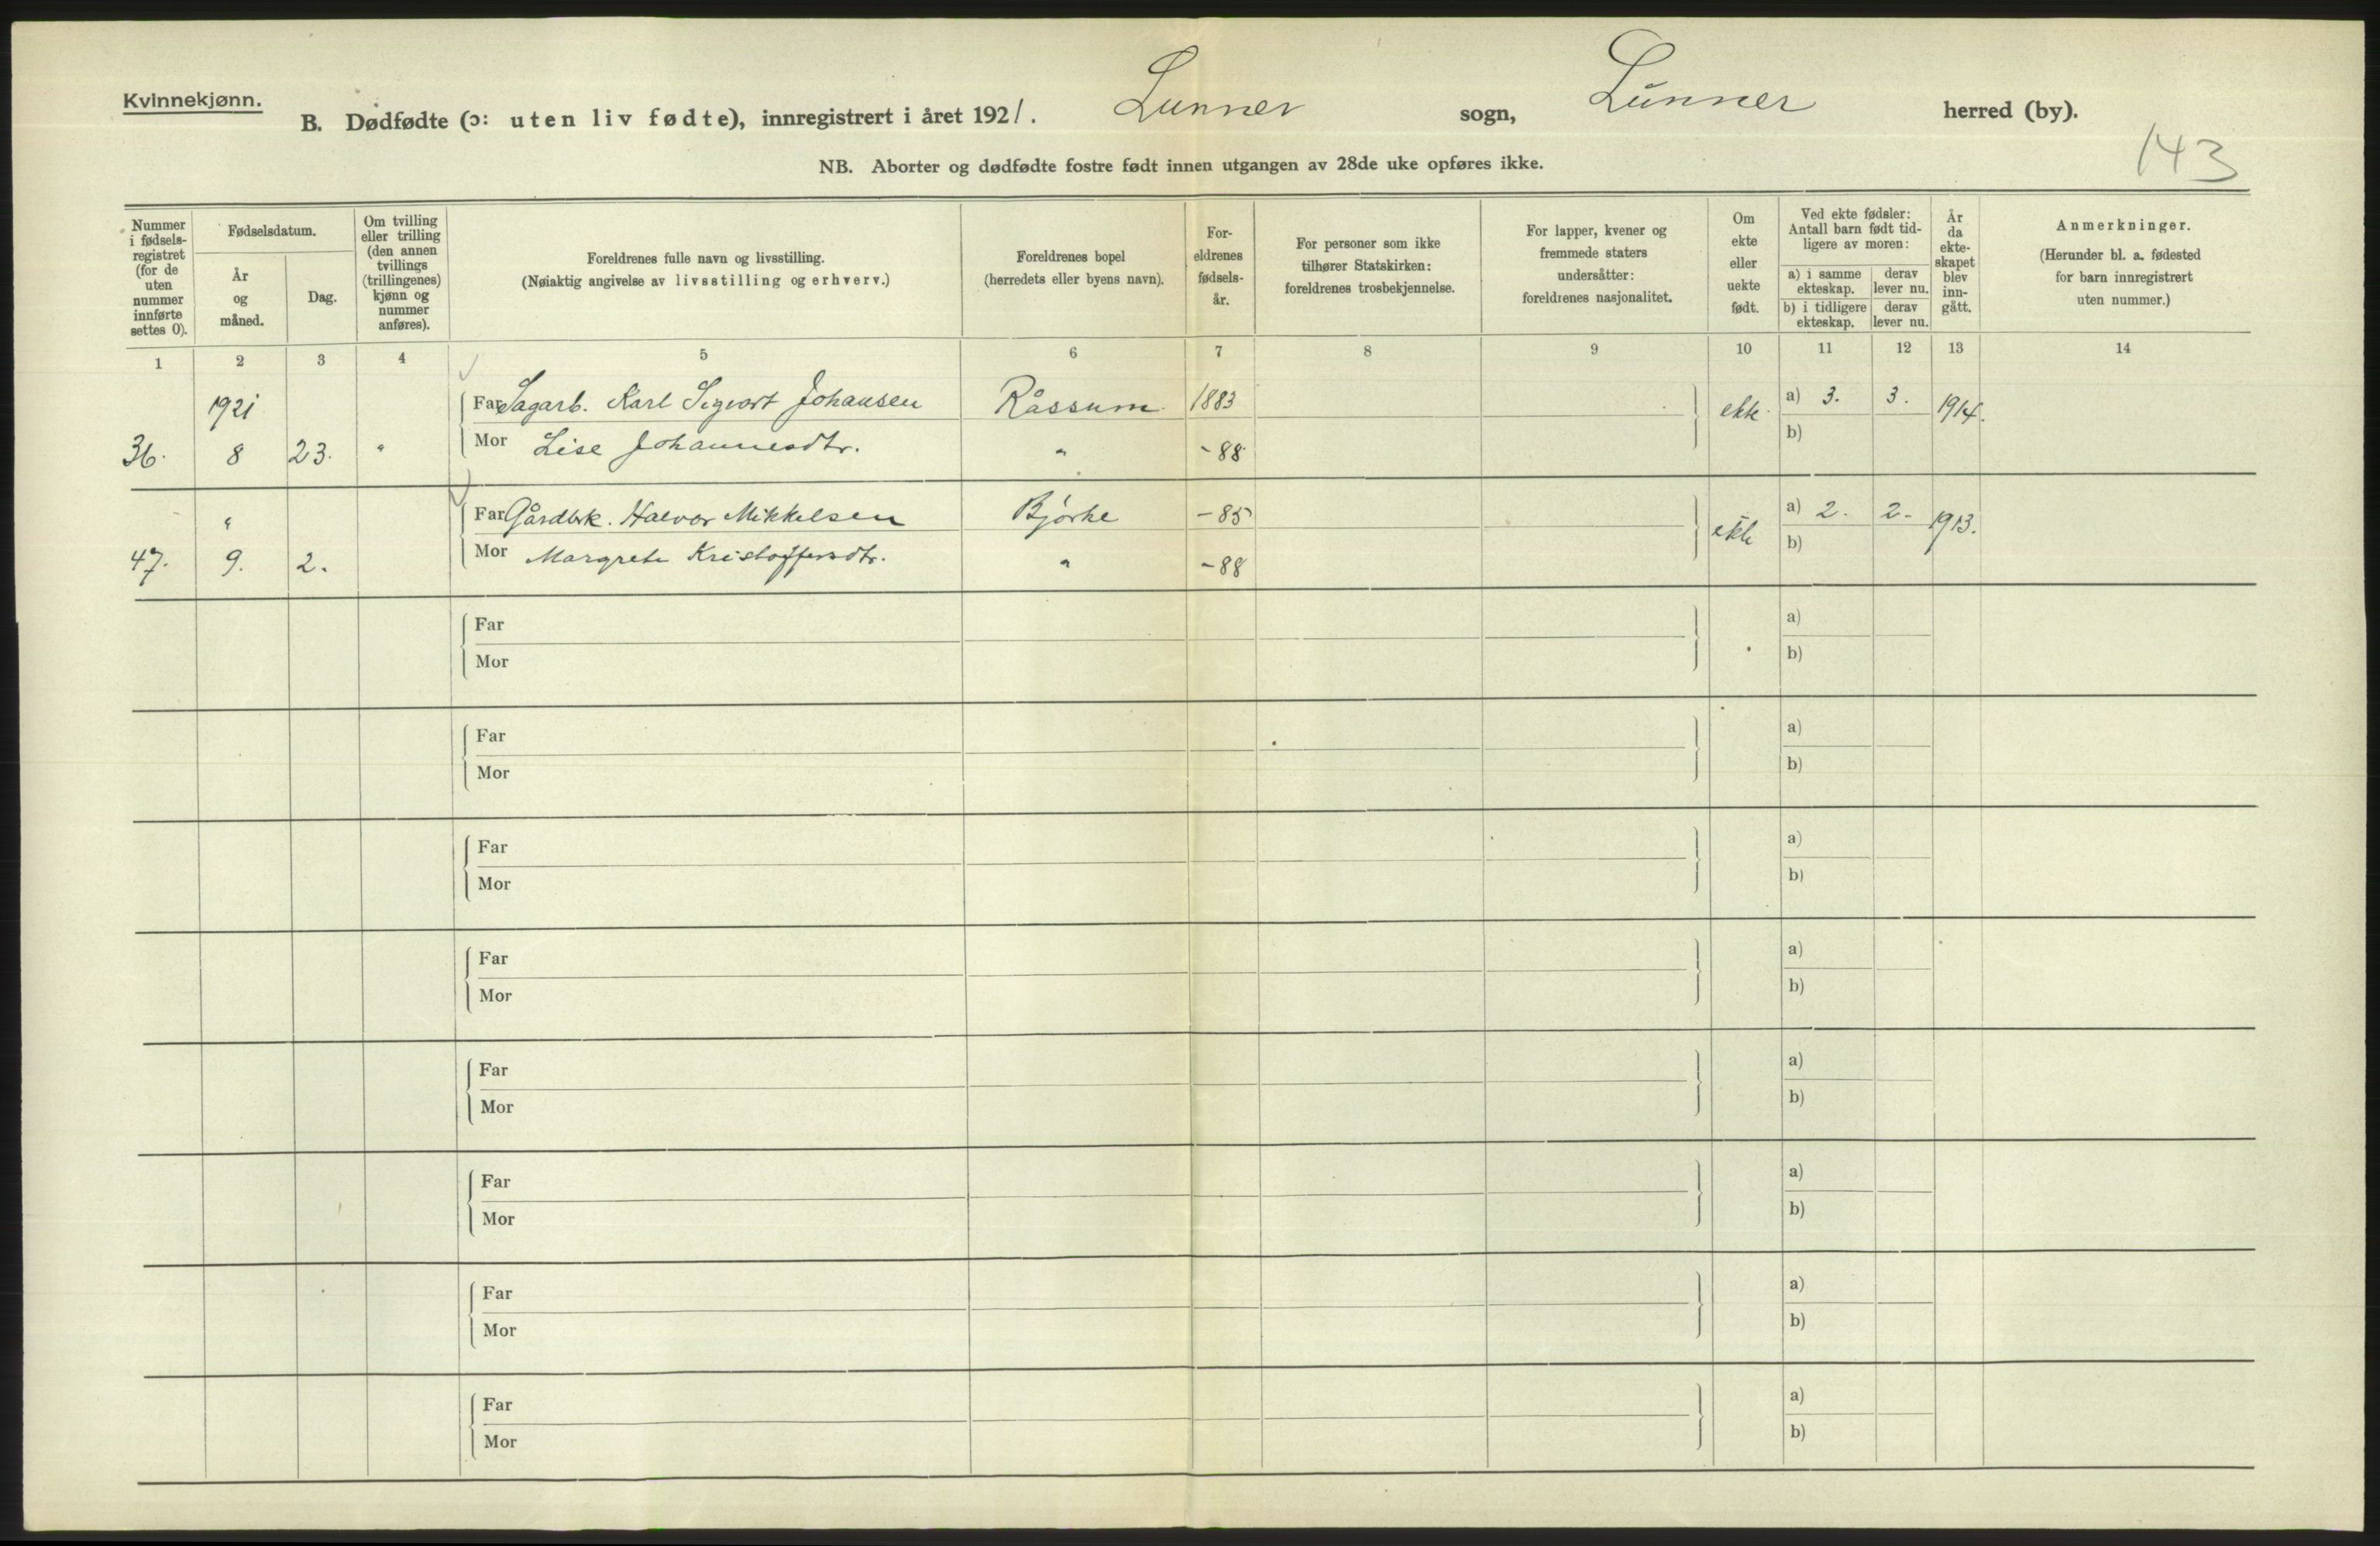 Kvinnekjønn.
B. Dødfødte (ɔ: uten liv fødte), innregistrert i året 1921. Lunner sogn, Lunner herred (by).
143
NB. Aborter og dødfødte fostre født innen utgangen av 28de uke opføres ikke.
Nummer i fødsels-registret (for de uten nummer innførte settes 0).
Fødselsdatum.
År og måned.
Dag.
Om tvilling eller trilling (den annen tvillings (trillingenes) kjønn og nummer anføres).
Foreldrenes fulle navn og livsstilling.
(Nøiaktig angivelse av livsstilling og erhverv.)
Foreldrenes bopel
(herredets eller byens navn).
For-eldrenes fødsels-år.
For personer som ikke tilhører Statskirken: foreldrenes trosbekjennelse.
For lapper, kvener og fremmede staters undersåtter: foreldrenes nasjonalitet.
Om ekte eller uekte født.
Ved ekte fødsler: Antall barn født tid-ligere av moren:
a) i samme ekteskap.
derav lever nu.
b) i tidligere ekteskap.
derav lever nu.
År da ekte-skapet blev inn-gått.
Anmerkninger.
(Herunder bl. a. fødested for barn innregistrert uten nummer.)
1 2 3 4 5 6 7 8 9 10 11 12 13 14
1921 Far Sagarb. Karl Sigvart Johansen Råssum. 1883 ekte. a) 3. 3. 1914.
36. 8 23. " Mor Lise Johannesdtr. " -88 b)
" Far Gårdbrk. Halvor Mikkelsen Bjørke -85 ekte a) 2. 2- 1913.
47. 9. 2. Mor Margrete Kristoffersdtr. " -88 b)
Far a)
Mor b)
Far a)
Mor b)
Far a)
Mor b)
Far a)
Mor b)
Far a)
Mor b)
Far a)
Mor b)
Far a)
Mor b)
Far a)
Mor b)